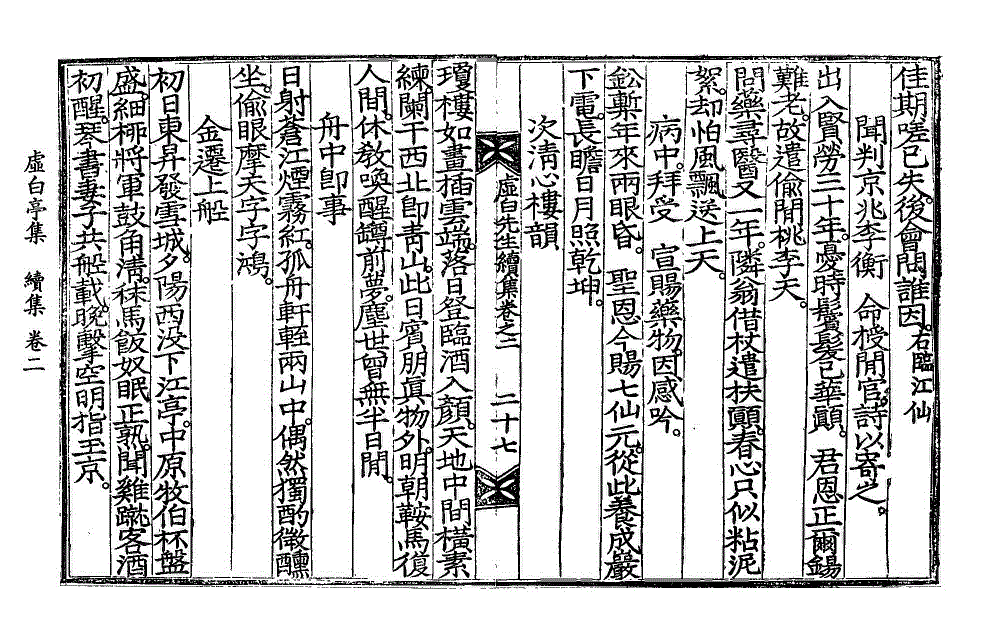 佳期嗟已失。後會問誰因。右臨江仙
聞判京兆李衡 命授閒官。詩以寄之。
出入賢勞三十年。憂時鬢髮已華顚。 君恩正爾錫
難老。故遣偸閒桃李天。
問藥尋醫又一年。隣翁借杖遣扶顚。春心只似粘泥
絮。却怕風飄送上天。
病中。拜受 宣賜藥物。因感吟。
鈆槧年來兩眼昏。 聖恩今賜七仙元。從此養成嚴
下電。長瞻日月照乾坤。
次淸心樓韻
虛白先生續集卷之二 二十七
瓊樓如畫揷雲端。落日登臨酒入顏。天地中間橫素
練。闌干西北卽靑山。此日賓朋眞物外。明朝鞍馬復
人間。休敎喚醒罇前夢。塵世曾無半日閒。
舟中卽事
日射蒼江煙霧紅。孤舟軒輊兩山中。偶然獨酌微醺
坐。偸眼摩天字字鴻。
金遷上船
初日東昇發雪城。夕陽西沒下江亭。中原牧伯杯盤
盛。細柳將軍鼓角淸。秣馬飯奴眠正熟。聞雞蹴客酒
初醒。琴書妻子共船載。晩擊空明指玉京。
虛白亭集 續集 卷二